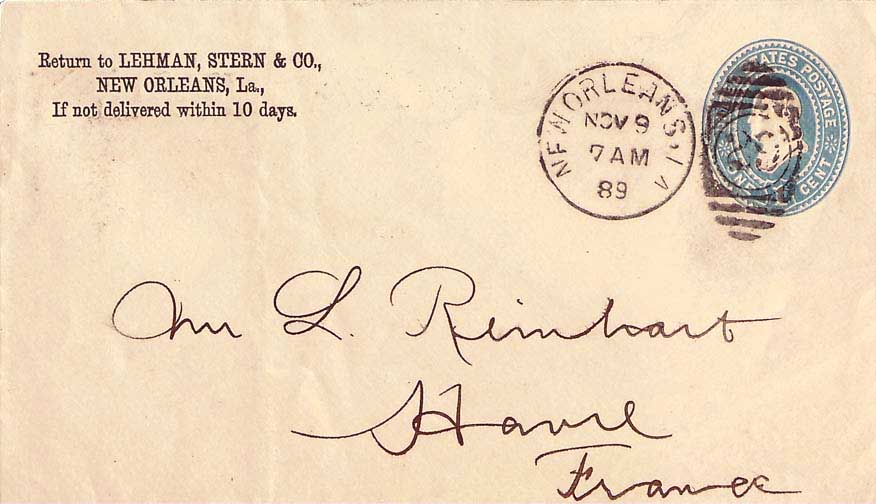 Return to LEHMAN, STERN & CO.,
NEW ORLEANS, La.,
If not delivered within 10 days.
NEW ORLEANS, LA
NOV 9
7 AM
89
STATES POSTAGE
ONE CENT
Mr L. Reinhart
Havre
France